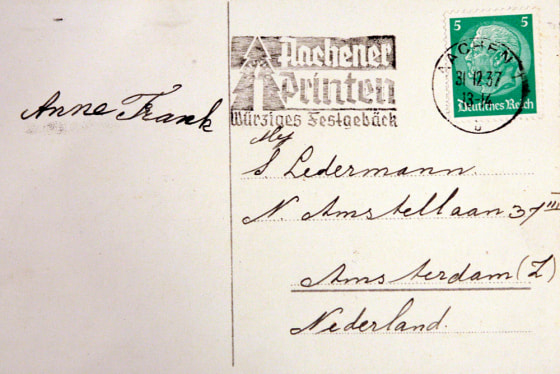 Anne Frank
Aachener
Printen
Würziges Festgebäck
5 5
AACHEN
31.12.37
13-14
b
Deutsches Reich
S Ledermann.
N. Amstellaan 37 III
Amsterdam (Z)
Nederland.